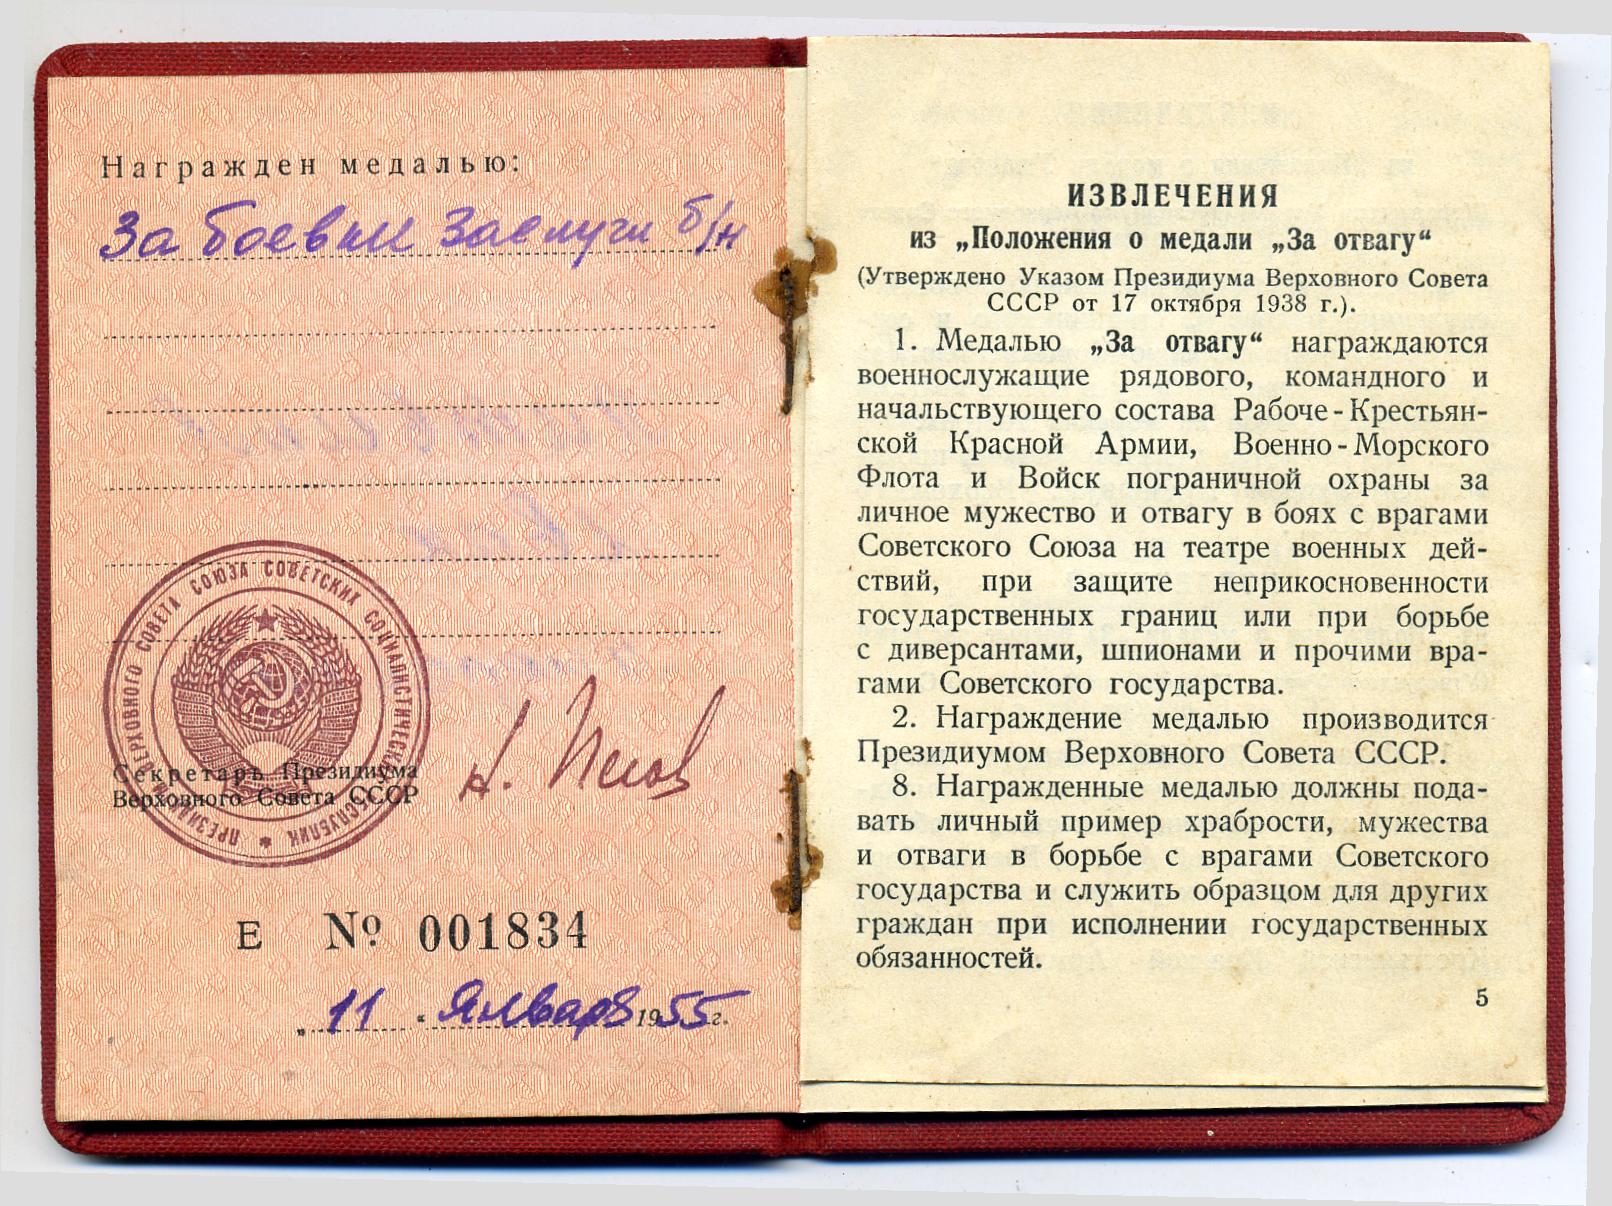 Награжден медалью:
За боевые заслуги б/н
ПРЕЗИДИУМ ВЕРХОВНОГО СОВЕТА СОЮЗА СОВЕТСКИХ СОЦИАЛИСТИЧЕСКИХ РЕСПУБЛИК
Секретарь Президиума
Верховного Совета СССР
Н. Пегов
Е № 001834
„11“ Января 1955 г.
ИЗВЛЕЧЕНИЯ
из „Положения о медали „За отвагу“
(Утверждено Указом Президиума Верховного Совета
СССР от 17 октября 1938 г.).
1. Медалью „За отвагу“ награждаются
военнослужащие рядового, командного и
начальствующего состава Рабоче-Крестьян-
ской Красной Армии, Военно-Морского
Флота и Войск пограничной охраны за
личное мужество и отвагу в боях с врагами
Советского Союза на театре военных дей-
ствий, при защите неприкосновенности
государственных границ или при борьбе
с диверсантами, шпионами и прочими вра-
гами Советского государства.
2. Награждение медалью производится
Президиумом Верховного Совета СССР.
8. Награжденные медалью должны пода-
вать личный пример храбрости, мужества
и отваги в борьбе с врагами Советского
государства и служить образцом для других
граждан при исполнении государственных
обязанностей.
5